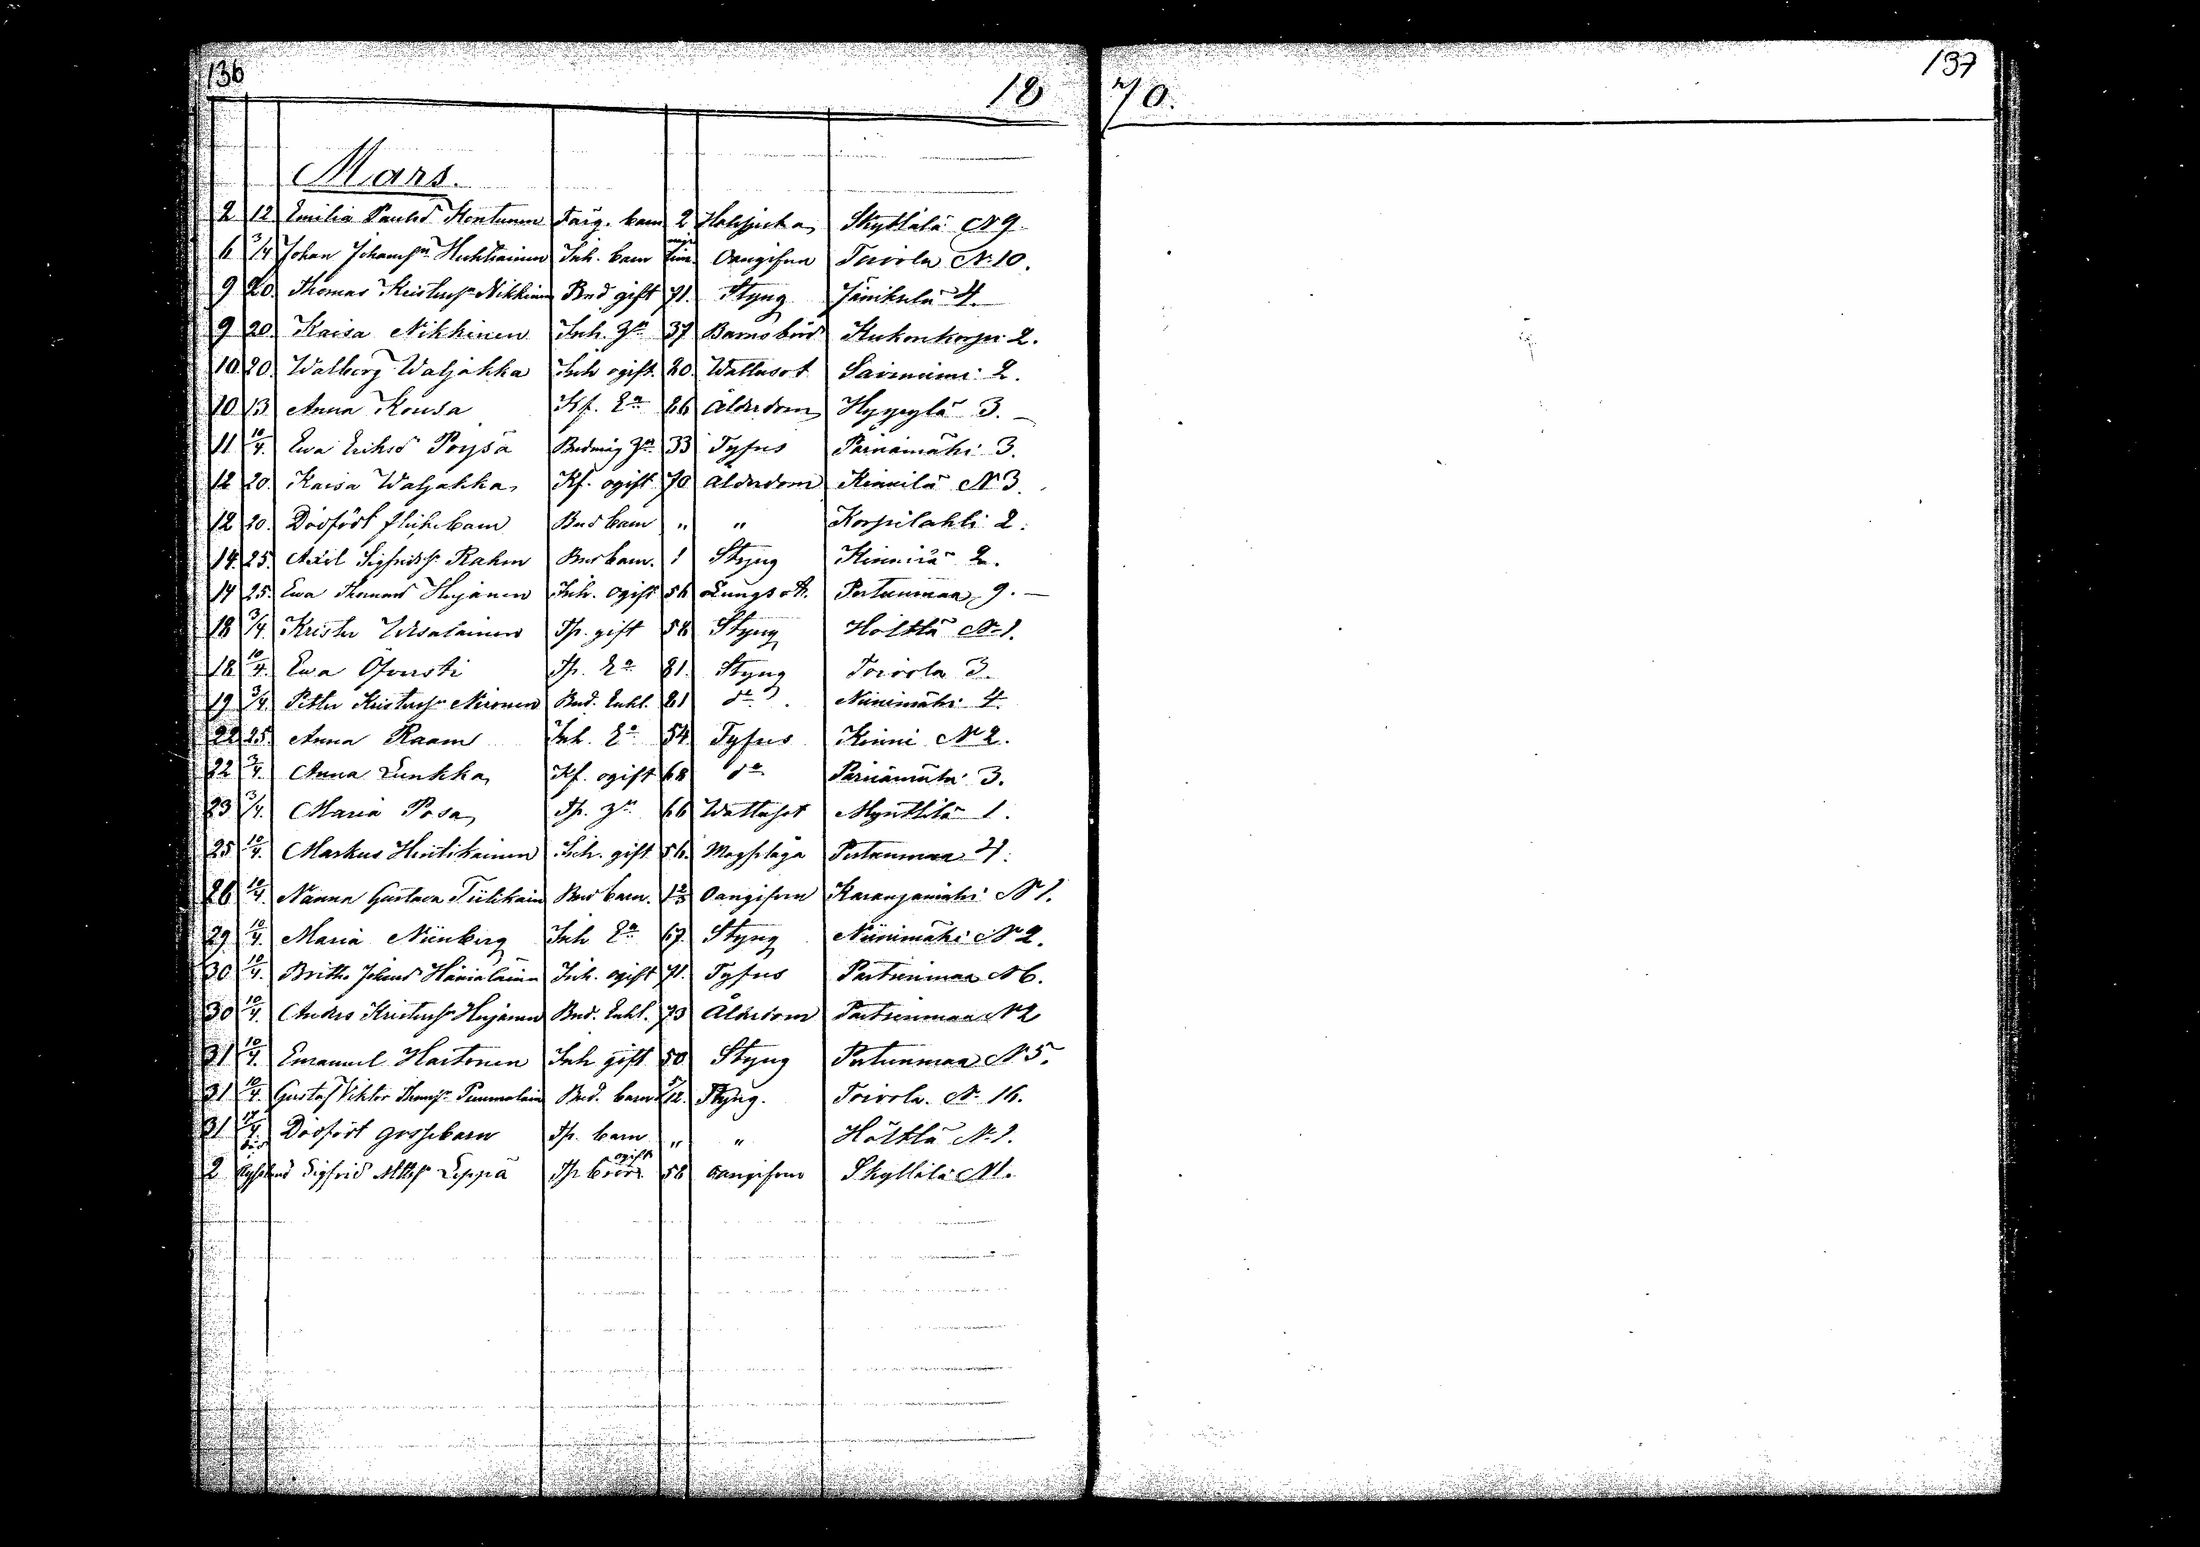 136
18 70.
137
Mars.
2 12 Emilia Paulsd Kontunen Färg. barn 2 Halssjuka Skyttälä N 9.
6 3/4 Johan Johanss:n Huhtiainen Inh. barn Oangifven Toivola N:10.
9 20. Thomas Kristerss:n Nikkinen Bnd gift 71. Styng Jänikylä 4.
9 20. Kaisa Nikkinen Inh. h:u 37 Barnsbörd Kukonkorpi 2.
10 20. Walborg Waljakka Inh ogift. 20. Wattusot Saviniemi 2.
10 13. Anna Kousa Kf. E:a 86 Ålderdom Hyyrylä 3.
11 10/4. Ewa Eriksd Pöysä Bndmåg h:u 33 Tyfus Pärnämäki 3.
12 20. Kaisa Waljakka Kf. ogift 70 Ålderdom Kinnilä N 3.
12 20. Dödfödt flickebarn Bnd barn " " Korpilahti 2.
14. 25. Axel Sigfridss:n Rahm Bnd barn. 1 Styng Kinniiä 2.
14 25. Ewa Thomasd Hujanen Inh. ogift 56 Lungsot. Pertunmaa 9.
18 3/4. Krister Ursalainen Tp. gift 58 Styng Hölttä N:1.
18 10/4. Ewa Öfversti Tp. E:a 81. Styng Toivola 3.
19 3/4. Petter Kristerss:n Niironen Bnd. Enkl. 81 d:o. Niinimäki 4.
22 25. Anna Raam Inh. E:a 54. Tyfus Kinni N 2.
22 3/4. Anna Lunkka Kf. ogift 68 d:o Pärnämäki 3.
23 3/4. Maria Posa Tp. h:u 66 Wattusot Mynttilä 1.
25 10/4. Markus Hintikainen Inh. gift 56. Magplåga Pertunmaa 4.
26 10/4. Nanna Gustava Tiilikain Bnd barn. Oangifven Karanjamäki N 1.
29. 10/4. Maria Niinberg Inh E:a 67. Styng Niinimäki N 2.
30. 10/4. Britha Johansd Hämäläinen Inh. ogift 71. Tyfus Pertunmaa N 6.
30 10/4. Anders Kristerss:n Hujanen Bnd. Enkl. 73 Ålderdom Pertunmaa N 2
31 10/4. Emanuel Hartonen Inh gift 50 Styng Pertunmaa N 5.
31 10/4. Gustaf Viktor Thomss:n Pummalain Bnd. barn 5/12. Styng. Toivola. N:16.
31 17/4. Dödfödt gossebarn Tp. barn " " Hölttä N:1.
2 Sigfrid Mattss:n Leppä Tp bror ogift 58 Oangifven Skyttälä N 1.